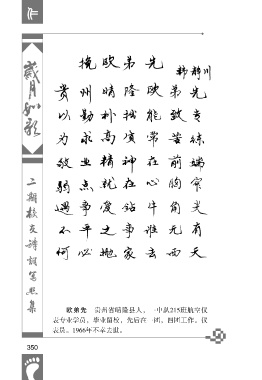 岁月如歌
二期校友诗词写照集
挽欧弟先
韩静川
贵州晴隆欧弟先
以勤补拙能致专
为求高质常苦练
敬业精神在前端
弱点就在心胸窄
遇事爱钻牛角尖
不平之事谁无有
何必抛家去西天
欧弟先 贵州省晴隆县人，一中队215班航空仪
表专业学员，毕业留校，先后在一团、四团工作，仪
表员。1966年不幸去世。
350